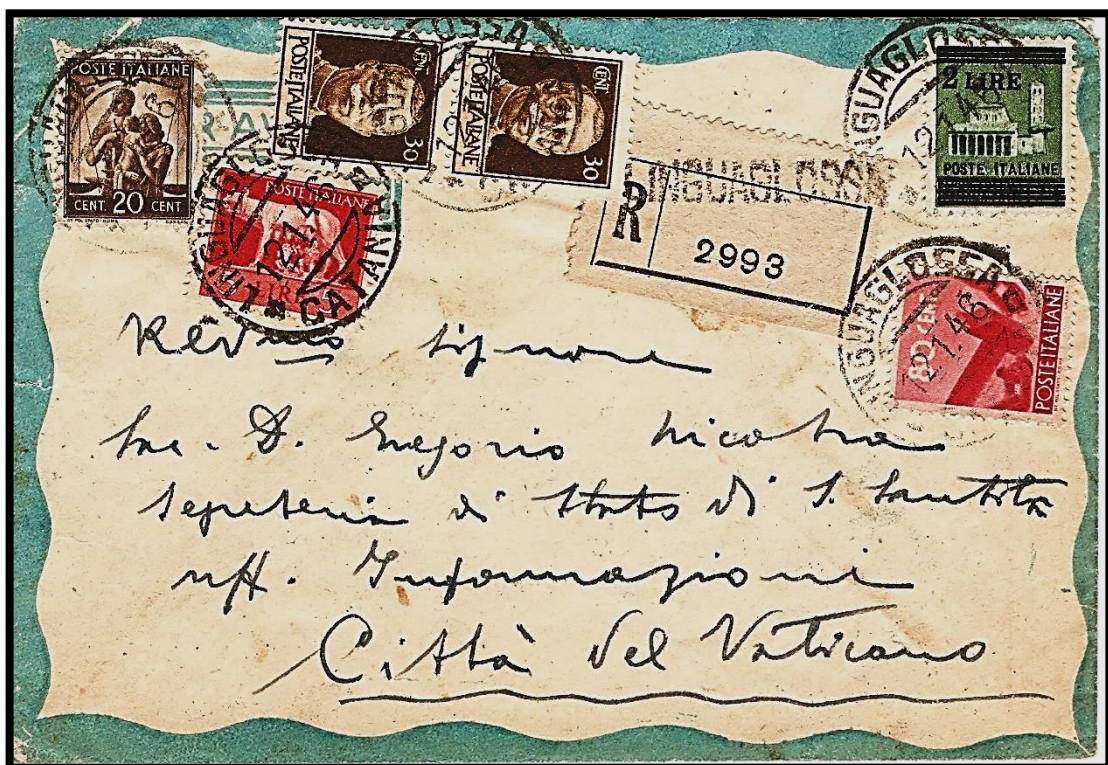 POSTE ITALIANE
CENT. 20 CENT.
POSTE ITALIANE
CENT. 30
POSTE ITALIANE
CENT. 30
LINGUAGLOSSA
12.1.46
2 LIRE
POSTE ITALIANE
R
LINGUAGLOSSA
2993
POSTE ITALIANE
LIRE
LINGUAGLOSSA
12.1.46
CATANIA
LINGUAGLOSSA
12.1.46
80 CENT
POSTE ITALIANE
Rev.mo Signore
Sac. D. Gregorio Nicotra
Segreteria di Stato di S. Santità
uff. Informazioni
Città del Vaticano